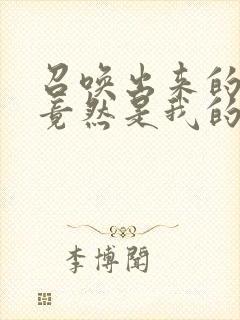 召唤出来的
竟然是我的
李博闻